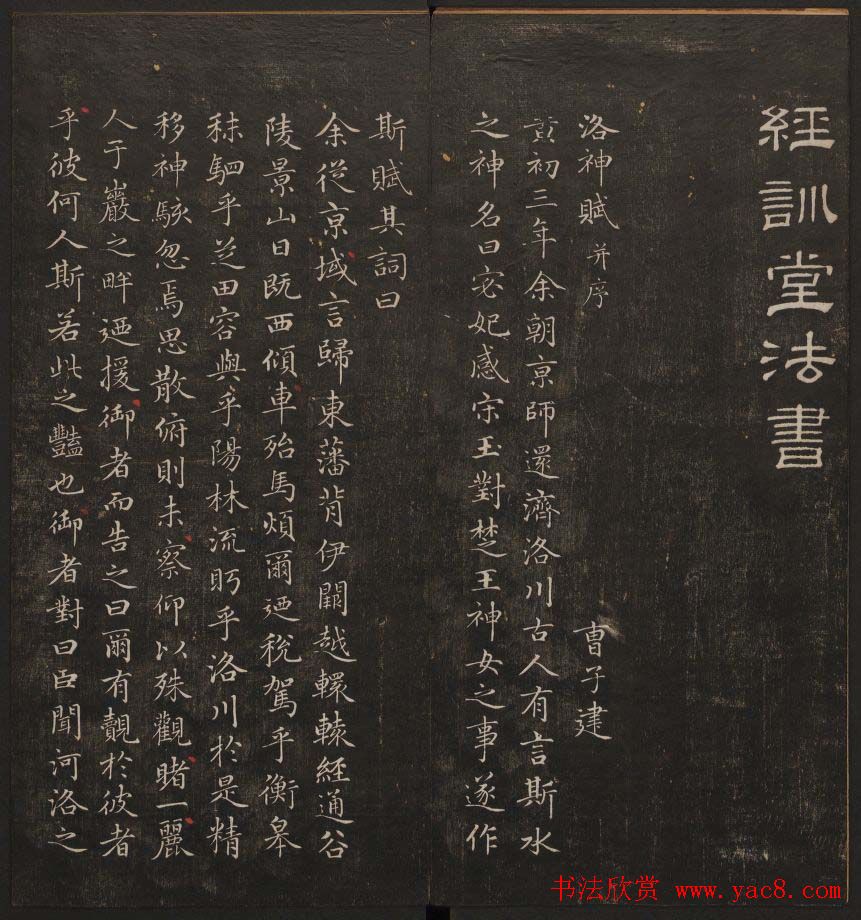 經訓堂法書
洛神賦 并序 曹子建
黃初三年余朝京師還濟洛川古人有言斯水
之神名曰宓妃感宋玉對楚王神女之事遂作
斯賦其詞曰
余從京域言歸東藩背伊闕越轘轅經通谷
陵景山日既西傾車殆馬煩爾迺稅駕乎蘅皋
秣駟乎芝田容與乎陽林流眄乎洛川於是精
移神駭忽焉思散俯則未察仰以殊觀睹一麗
人于巖之畔迺援御者而告之曰爾有覿於彼者
乎彼何人斯若此之豔也御者對曰臣聞河洛之
书法欣赏 www.yac8.com